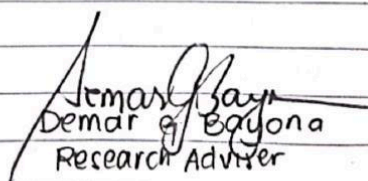 Demar G Bayona
Research Adviser